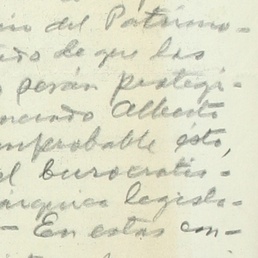 del Patrimo-
de que las
serán protegi-
Alberto
improbable ésto,
el burocratis-
árquica legisla-
- En estas con-